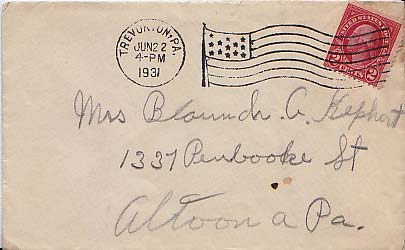 TREVORTON, PA.
JUN 22
4-PM
1931
UNITED STATES POSTAGE
2 CENTS 2
Mrs Blaunch. A. Hephort
1337 Penbooke St
Altoona Pa.